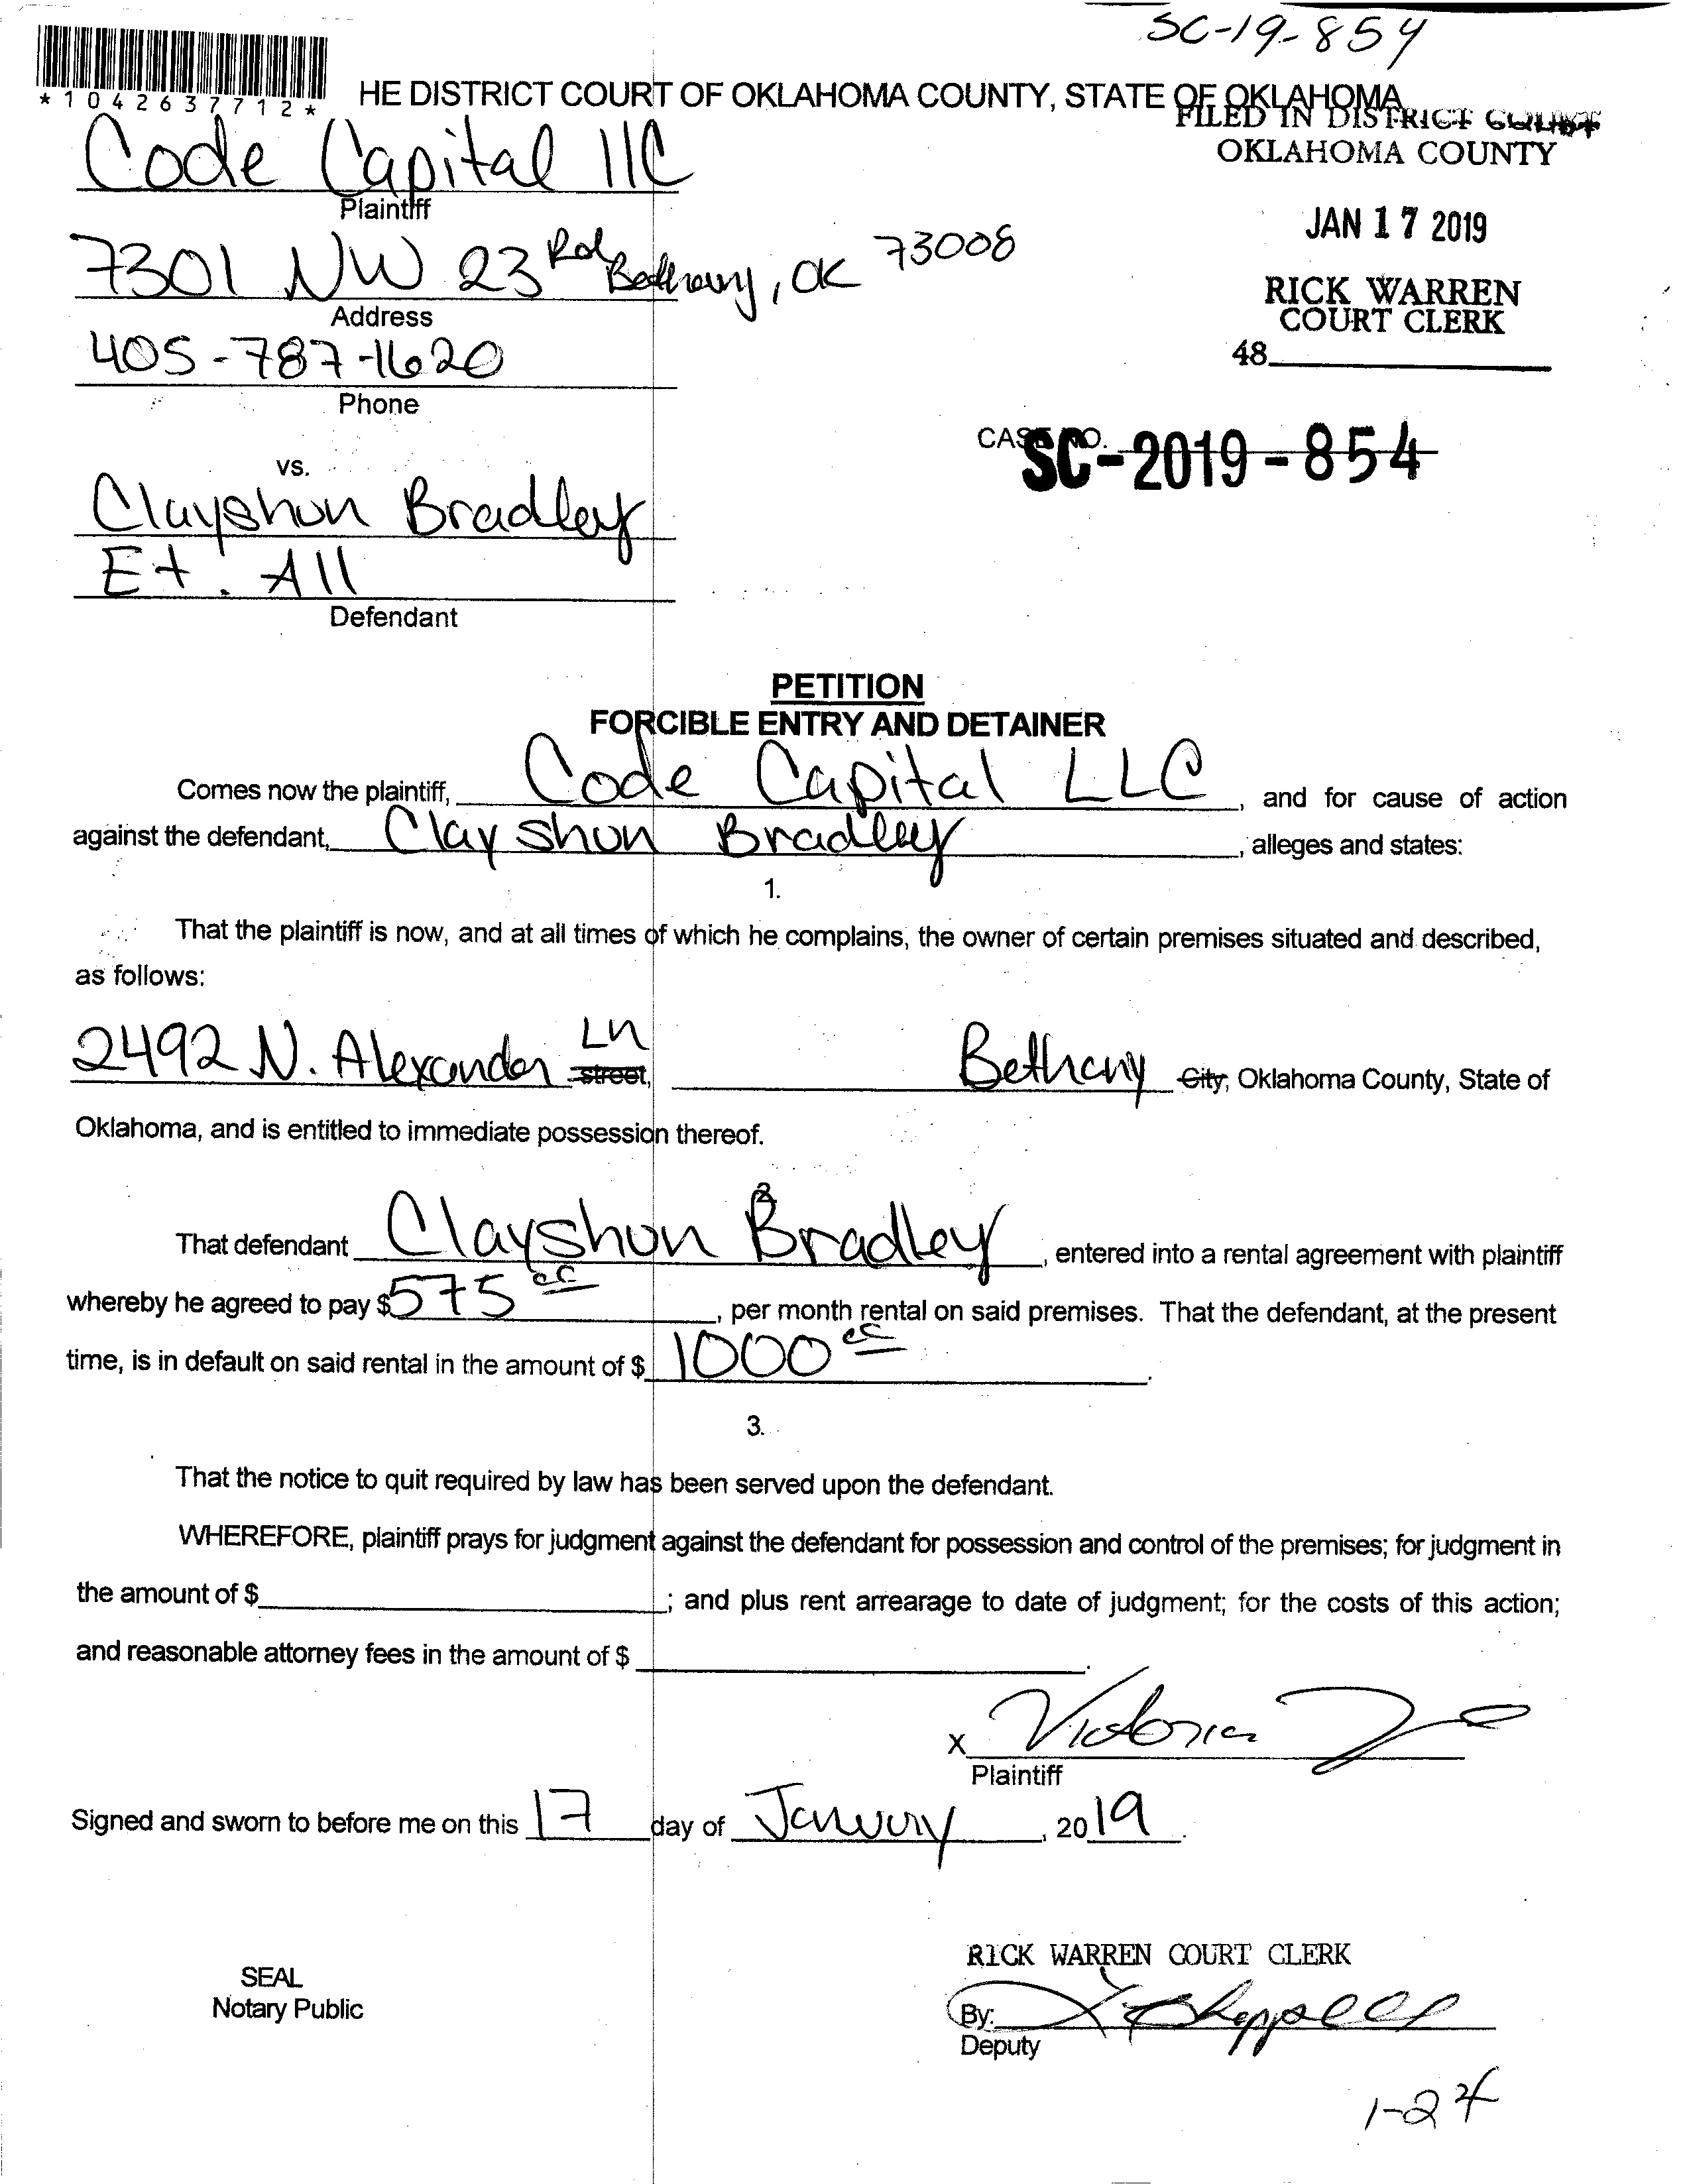 SC-19-854
*1042637712*
HE DISTRICT COURT OF OKLAHOMA COUNTY, STATE OF OKLAHOMA
FILED IN DISTRICT COURT
OKLAHOMA COUNTY
Code Capital llC
Plaintiff
JAN 17 2019
7301 NW 23rd Bethany, OK 73008
Address
RICK WARREN
COURT CLERK
405-787-1620
48
Phone
CASE NO.
SC-2019-854
vs.
Clayshun Bradley
Et. All
Defendant
PETITION
FORCIBLE ENTRY AND DETAINER
Comes now the plaintiff, Code Capital LLC, and for cause of action
against the defendant, Clayshun Bradley, alleges and states:
1.
That the plaintiff is now, and at all times of which he complains, the owner of certain premises situated and described,
as follows:
2492 N. Alexander Ln street, Bethany City, Oklahoma County, State of
Oklahoma, and is entitled to immediate possession thereof.
2
That defendant Clayshun Bradley, entered into a rental agreement with plaintiff
whereby he agreed to pay $575, per month rental on said premises. That the defendant, at the present
time, is in default on said rental in the amount of $ 1000.
3.
That the notice to quit required by law has been served upon the defendant.
WHEREFORE, plaintiff prays for judgment against the defendant for possession and control of the premises; for judgment in
the amount of $; and plus rent arrearage to date of judgment; for the costs of this action;
and reasonable attorney fees in the amount of $.
X Victoria
Plaintiff
Signed and sworn to before me on this 17 day of January, 2019.
RICK WARREN COURT CLERK
SEAL
Notary Public
By:
Deputy
1-24